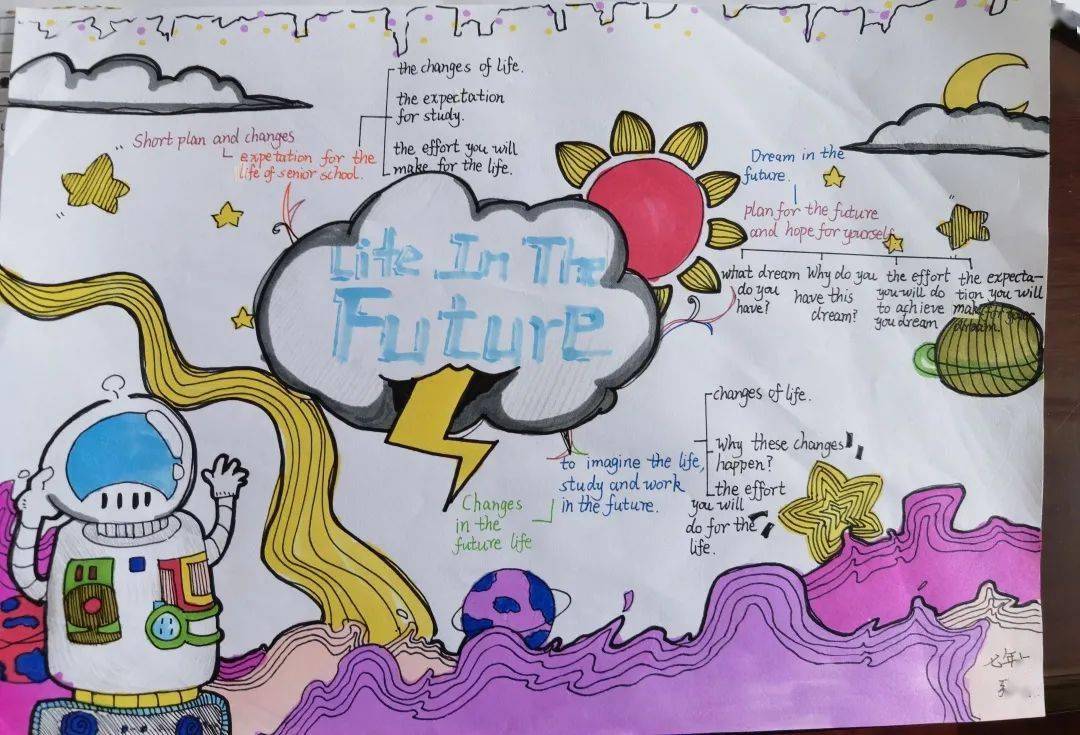 the changes of life.
the expectation
for study.
the effort you will
make for the life.
Short plan and changes
expetation for the
life of senior school.
Life In The
Future
Dream in the
future.
plan for the future
and hope for yourself
what dream
do you
have?
Why do you
have this
dream?
the effort
you will do
to achieve
you dream
the expecta-
tion you will
make for your
dream.
changes of life.
Why these changes
happen?
the effort
you will
do for the
life.
to imagine the life,
study and work
in the future.
Changes
in the
future life
七年